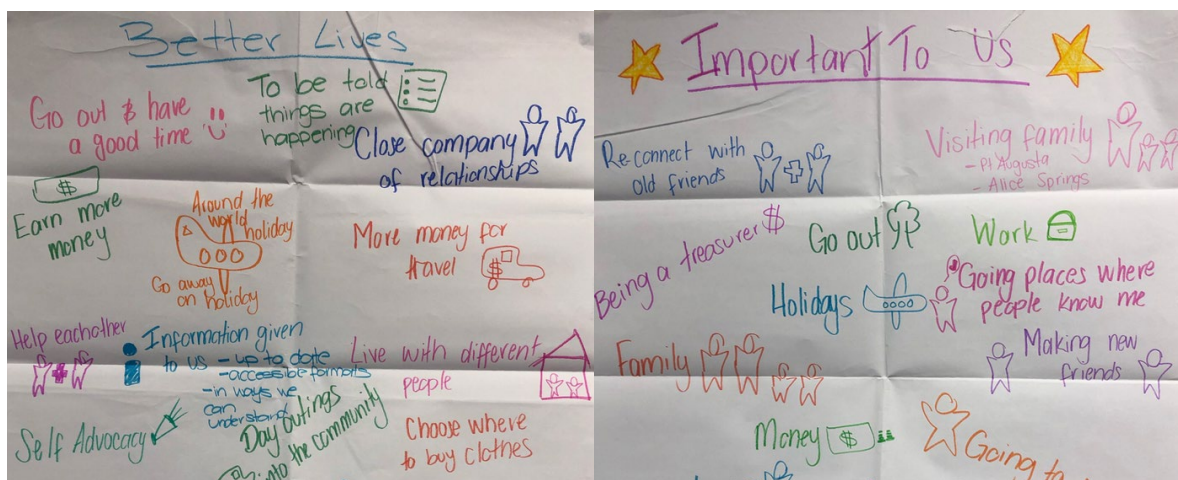 Better Lives
Go out & have
a good time
To be told
things are
happening
Close company
of relationships
$
Earn more
money
Around the
world
holiday
Go away
on holiday
More money for
travel
$
Help eachother
Information given
to us - up to date
- accessible formats
- in ways we
can
understand
Live with different
people
Self Advocacy
Day outings
into the community
Choose where
to buy clothes
Important To Us
Re connect with
old friends
Visiting family
- Pt Augusta
- Alice Springs
Being a treasurer $
Go out
Work
Holidays
Going places where
people know me
Family
Making new
friends
Money $
Going to